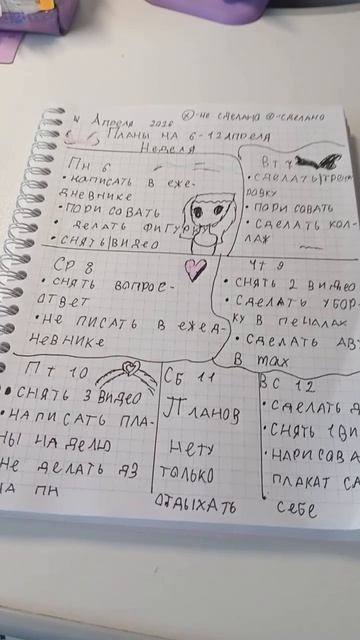 4 Апреля 2026 ⊗-не сделано @-сделано
Планы на 6-12 апреля
Неделя
Пн 6
• написать в еже-
дневнике
• порисовать
• делать фигуру
• снять видео
Вт 7
• сделать трени
ровку
• порисовать
• сделать кол-
лаж
Ср 8
• снять вопрос-
ответ
• не писать в ежед-
невнике
Чт 9
• снять 2 видео
• сделать убор-
ку в пеналах
• сделать ав
в max
Пт 10
• снять 3 видео
• написать пла-
ны на делю
не делать дз
на пн
Сб 11
Планов
нету
только
отдыхать
Вс 12
• сделать д
• снять 1 ви
• нарисова
плакат са
себе